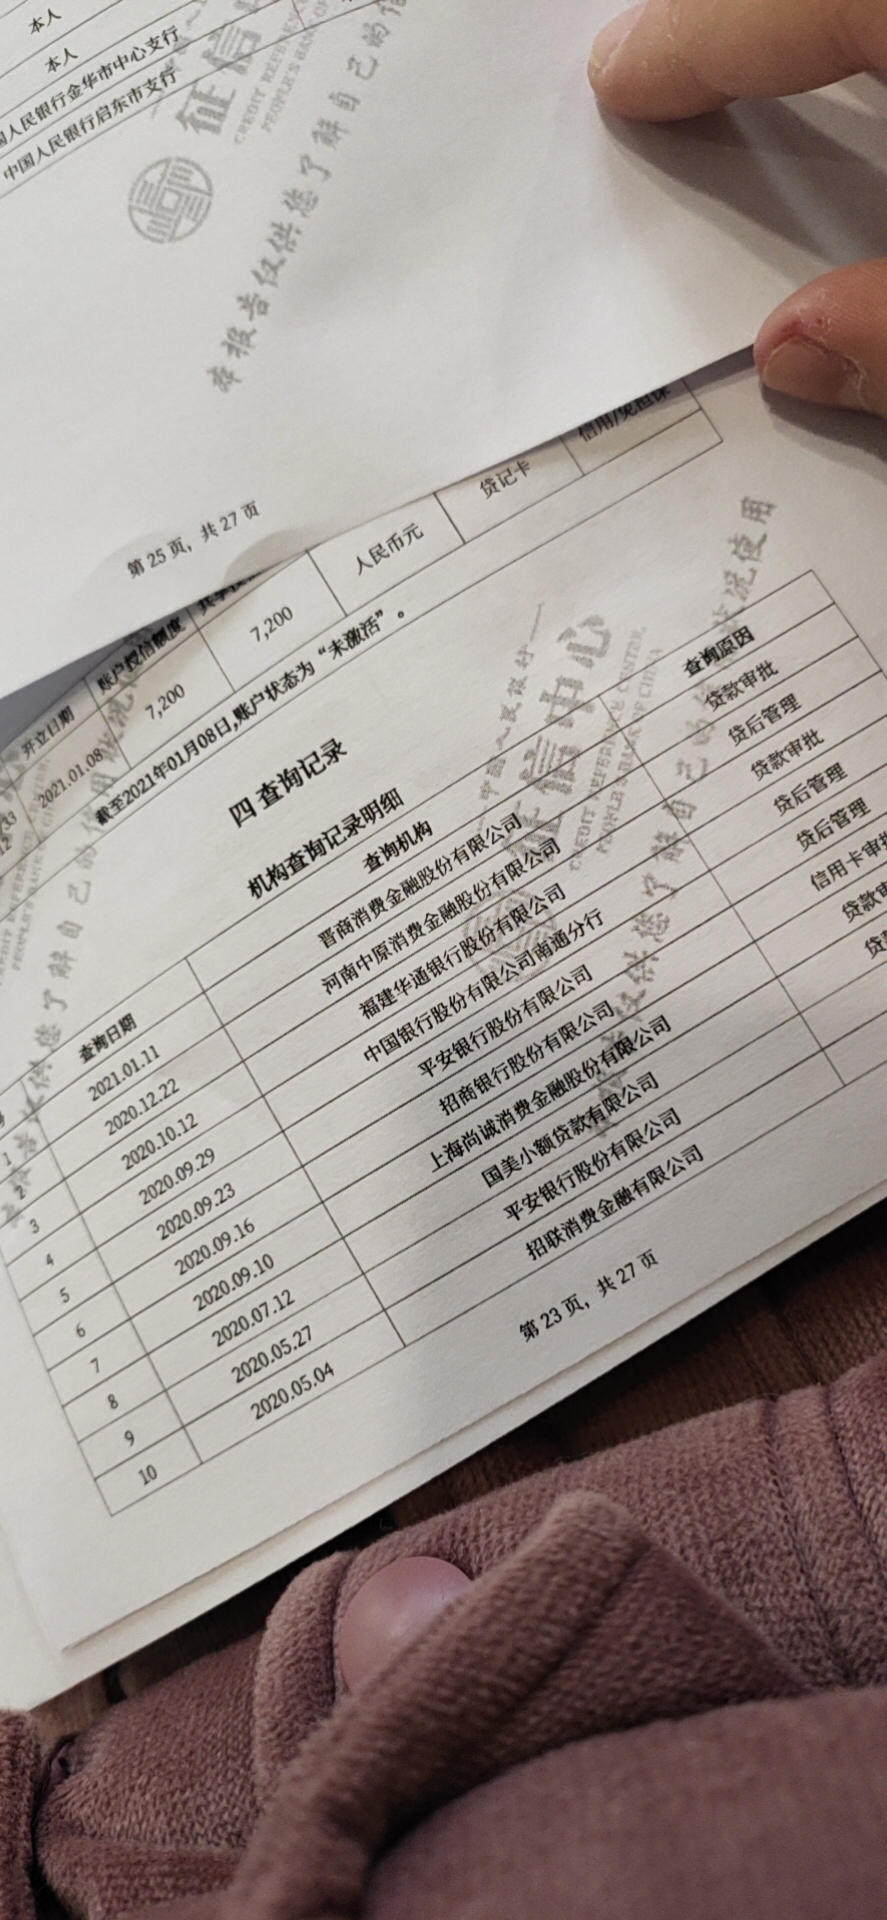 本人
本人
国人民银行金华市中心支行
中国人民银行启东市支行
征信
CREDIT REFERENCE
PEOPLE'S BANK OF
本报告仅供您了解自己的信
第 25 页，共 27 页
开立日期 账户授信额度 信用/免担保
2021.01.08 7,200 7,200 人民币元 贷记卡
截至2021年01月08日,账户状态为“未激活”。
四 查询记录
机构查询记录明细
查询日期 查询机构 查询原因
1 2021.01.11 晋商消费金融股份有限公司 贷款审批
2 2020.12.22 河南中原消费金融股份有限公司 贷后管理
3 2020.10.12 福建华通银行股份有限公司 贷款审批
4 2020.09.29 中国银行股份有限公司南通分行 贷后管理
5 2020.09.23 平安银行股份有限公司 贷后管理
6 2020.09.16 招商银行股份有限公司 信用卡审批
7 2020.09.10 上海尚诚消费金融股份有限公司 贷款审
8 2020.07.12 国美小额贷款有限公司 贷款
9 2020.05.27 平安银行股份有限公司
10 2020.05.04 招联消费金融有限公司
中国人民银行
征信中心
CREDIT REFERENCE CENTER,
PEOPLE'S BANK OF CHINA
仅供您了解自己的信用状况使用
第 23 页，共 27 页